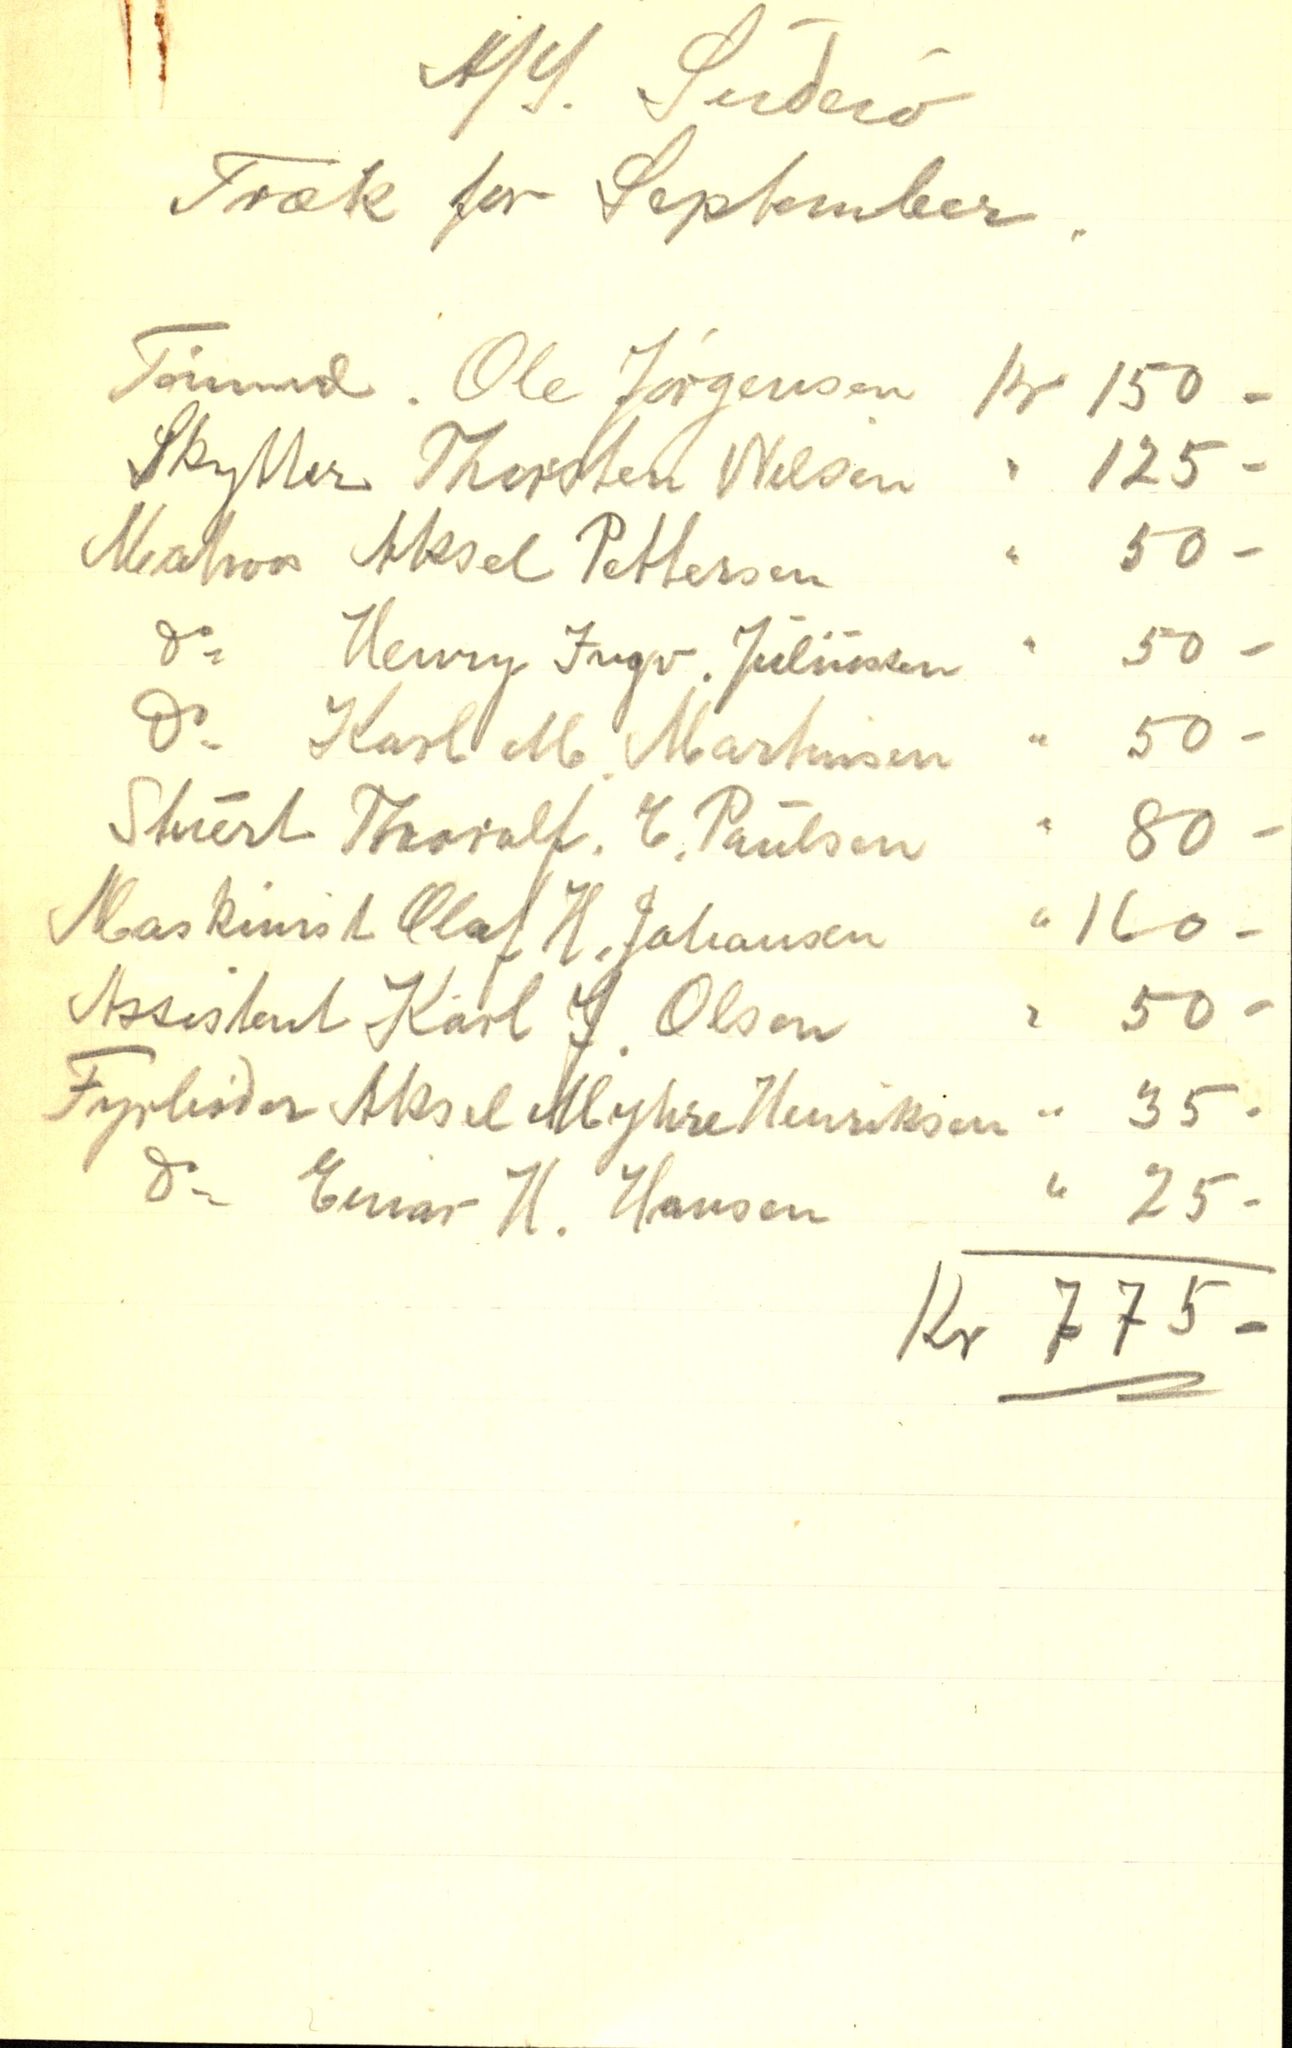 A/S. Suderö
Træk for September.
Ole Jörgensen Kr 150 -
Skytter Thorsten Nilsen " 125 -
Matros Aksel Pettersen " 50 -
do Henry Ingv. Juliussen " 50 -
Do Karl M. Martinsen " 50 -
Stuert Thoralf. E. Paulsen " 80 -
Maskinist Olaf H. Johansen " 160 -
Assistent Karl J. Olsen " 50 -
Fyrböder Aksel Myhre Henriksen " 35 -
do Einar H. Hansen " 25 -
Kr 775 -